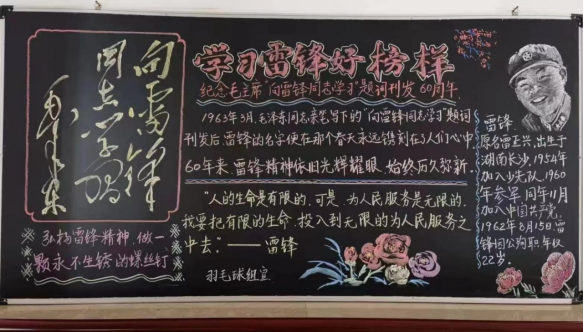 学习雷锋好榜样
纪念毛主席“向雷锋同志学习”题词刊发60周年
向雷锋
同志学习
毛泽东
1963年3月,毛泽东同志亲笔写下的“向雷锋同志学习”题词
刊发后,雷锋的名字便在那个春天永远镌刻在了人们心中
60年来,雷锋精神依旧光辉耀眼,始终历久弥新.
“人的生命是有限的,可是,为人民服务是无限的,
我要把有限的生命,投入到无限的为人民服务之
中去。”——雷锋
羽毛球组宣
弘扬雷锋精神,做一
颗永不生锈的螺丝钉
雷锋
原名雷正兴,出生于
湖南长沙,1954年
加入少先队,1960
年参军,同年11月
加入中国共产党.
1962年8月15日,雷
锋因公殉职,年仅
22岁.